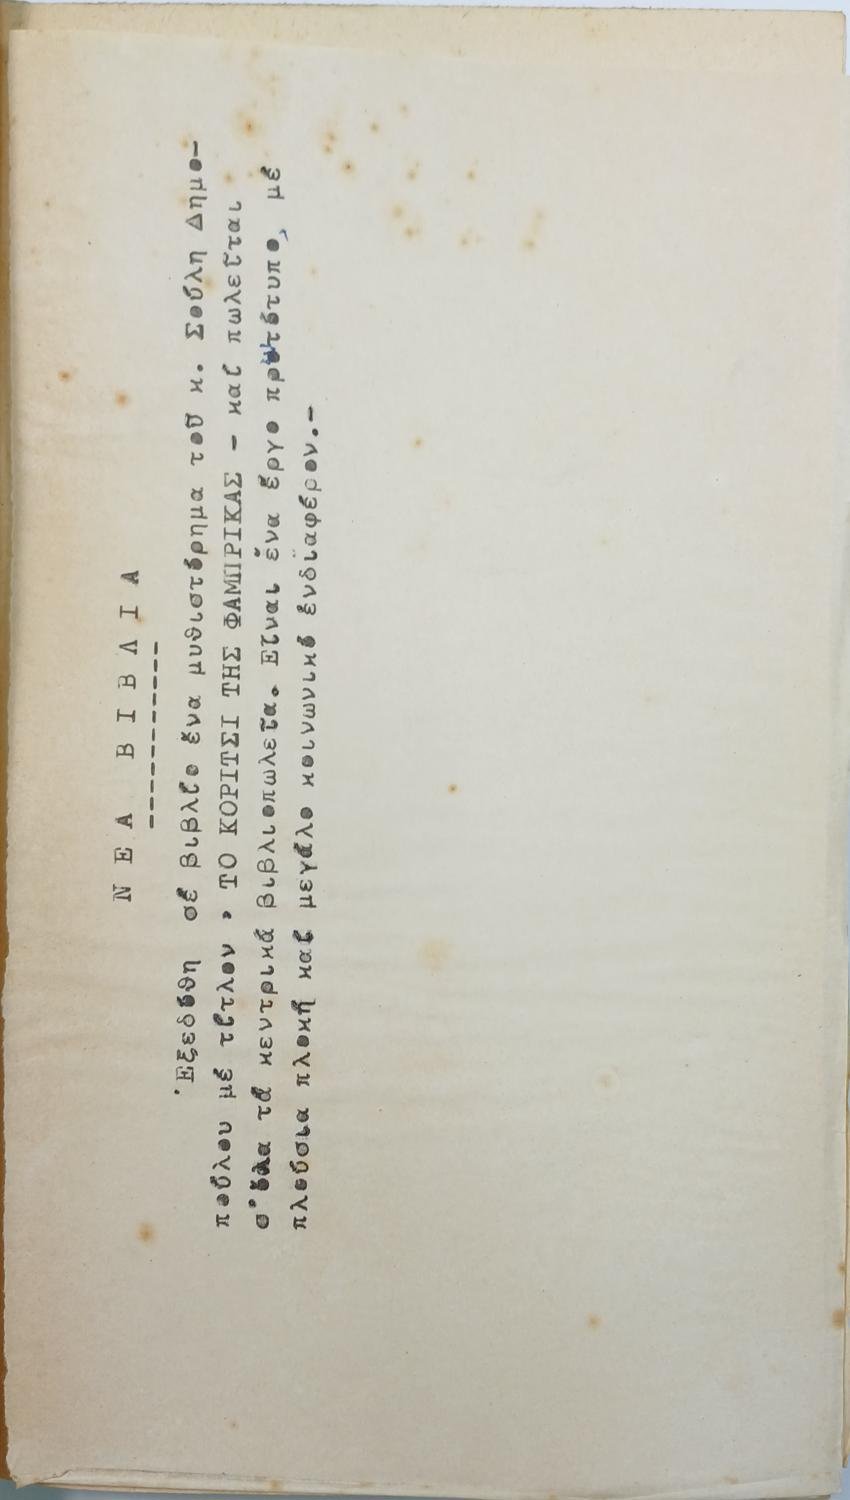 ΝΕΑ ΒΙΒΛΙΑ
-----------
'Εξεδόθη σέ βιβλίο ἕνα μυθιστόρημα τοῦ κ. Σούλη Δημο-
πούλου μέ τίτλον , ΤΟ ΚΟΡΙΤΣΙ ΤΗΣ ΦΑΜΠΡΙΚΑΣ - καί πωλεῖται
σ'ὅλα τά κεντρικά βιβλιοπωλεῖα. Εἶναι ἕνα ἔργο πρωτότυπο, μέ
πλούσια πλοκή καί μεγάλο κοινωνικό ἐνδιαφέρον.-